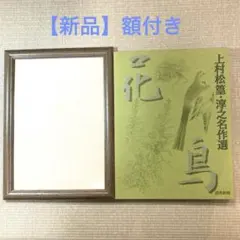 【新品】額付き
上村松篁・淳之名作選
花
鳥